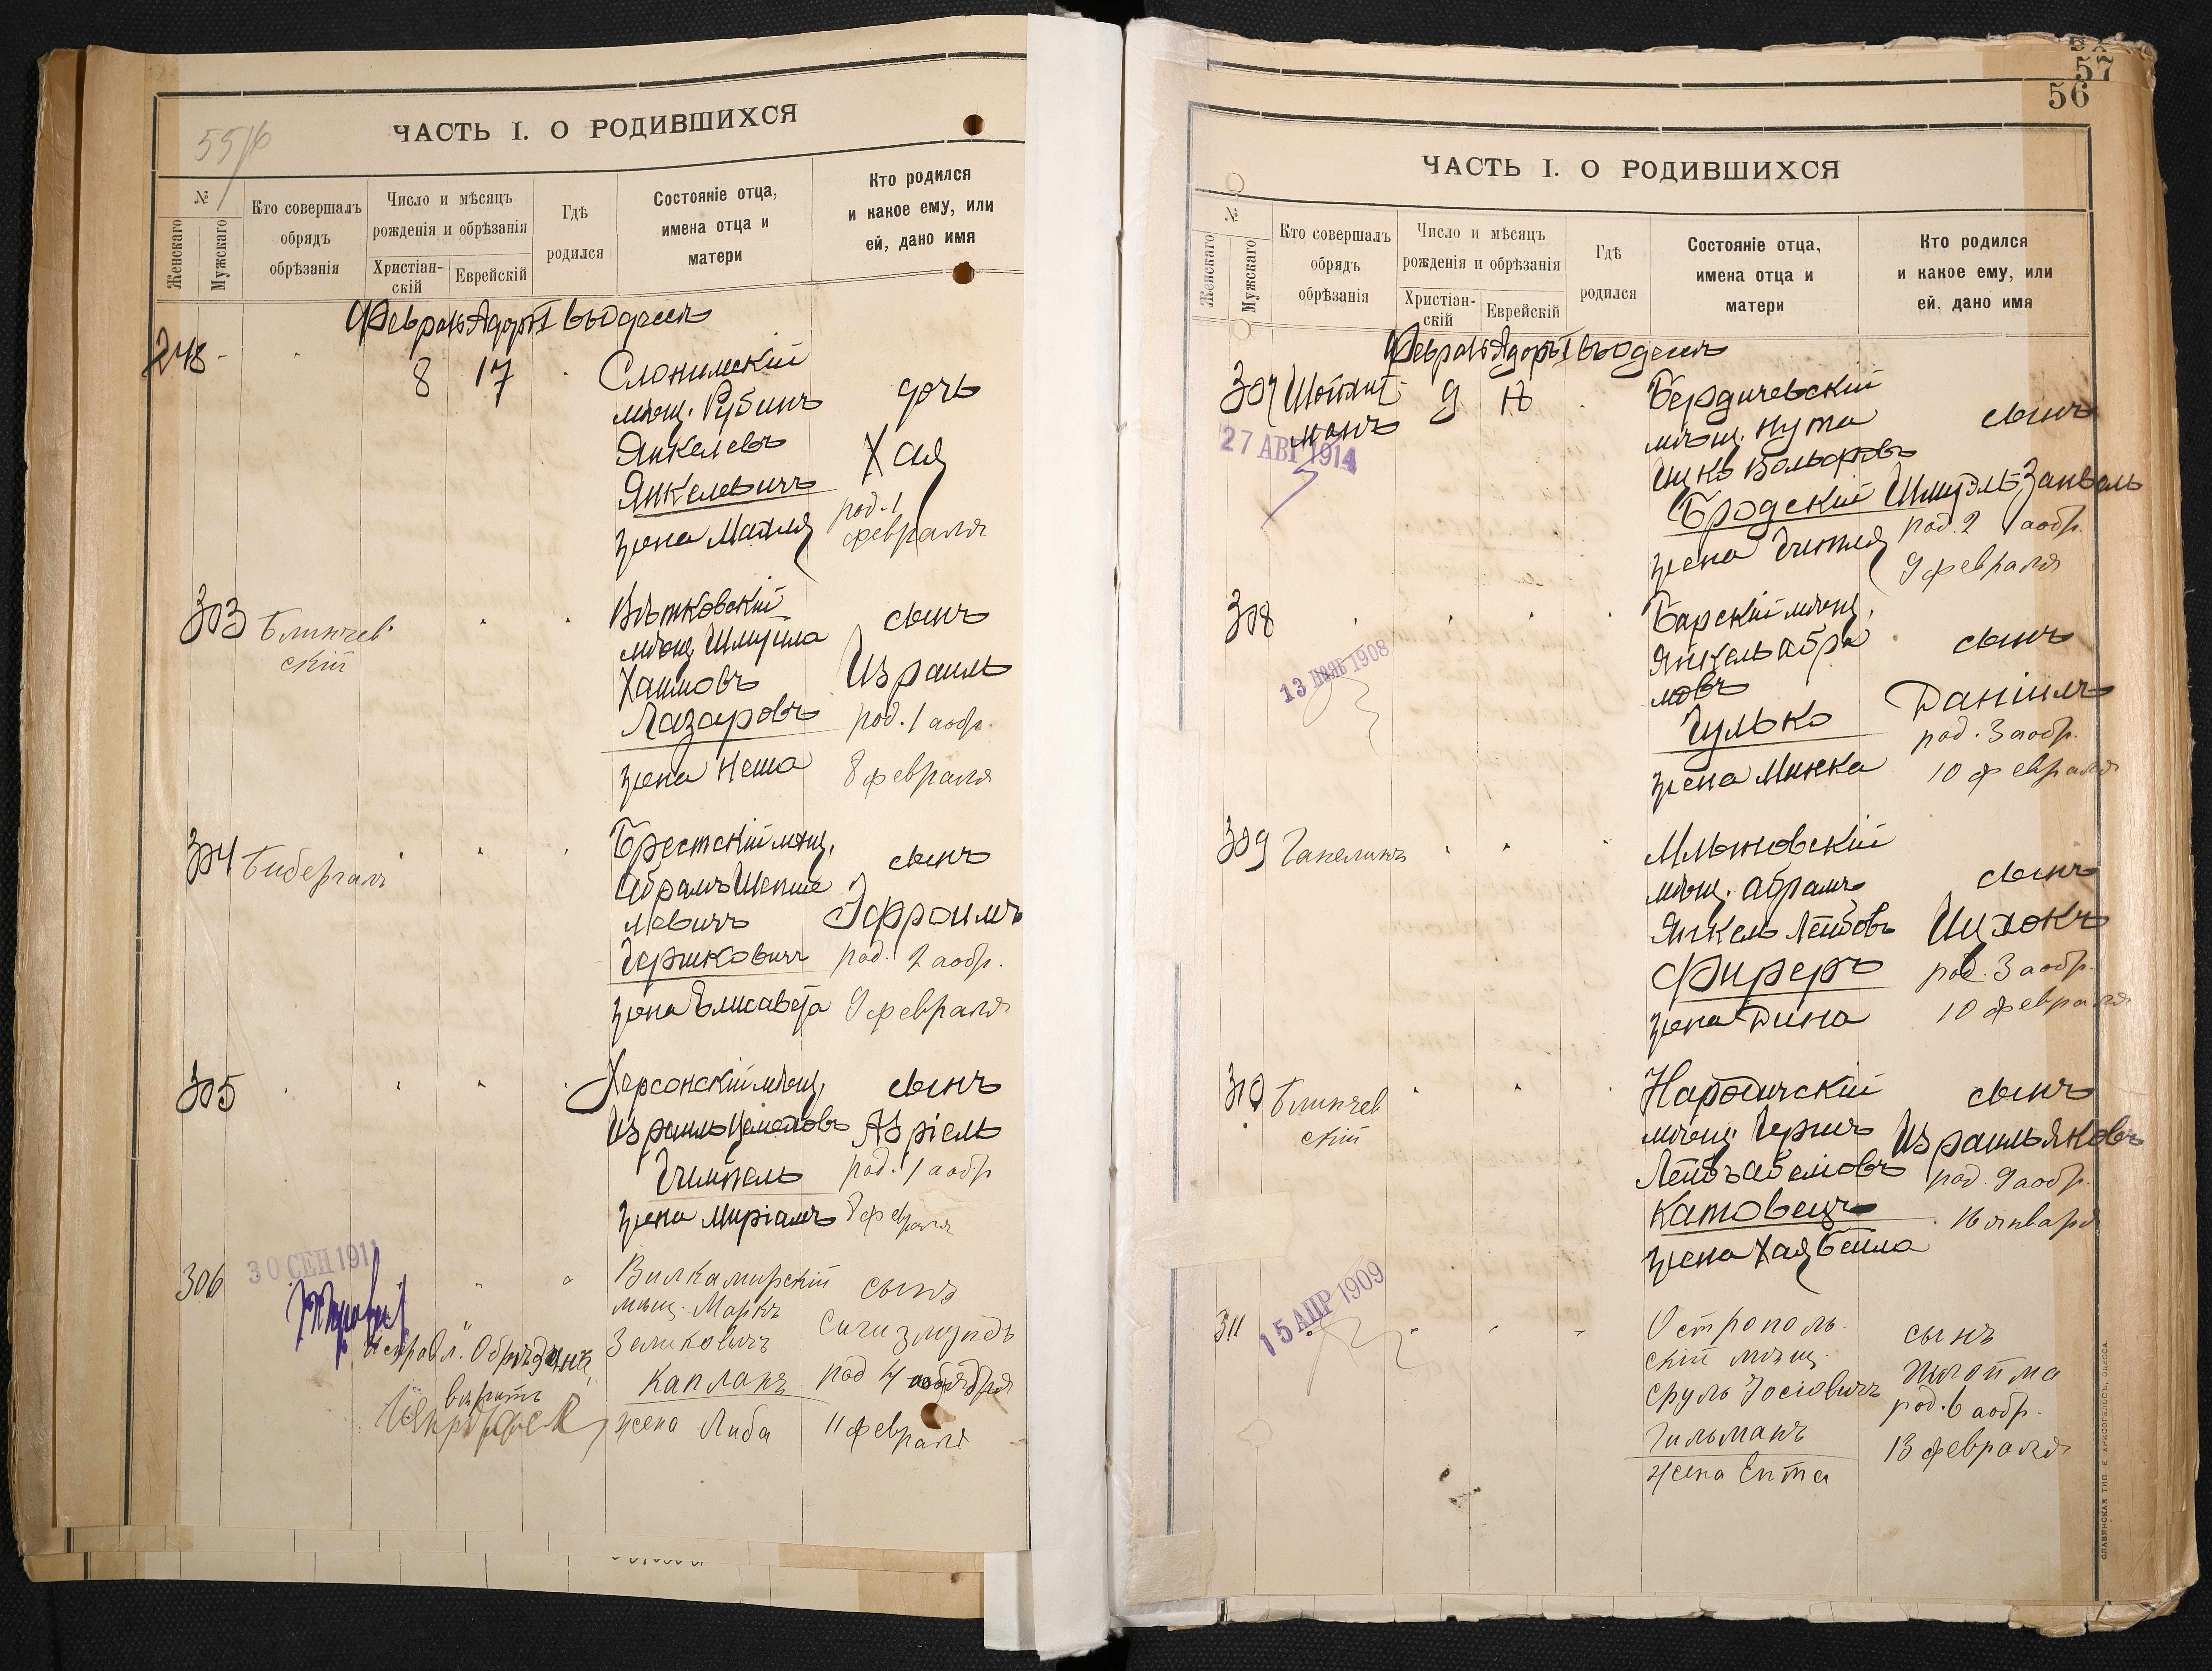 55/б
ЧАСТЬ I. О РОДИВШИХСЯ
№
Женскаго
Мужскаго
Кто совершалъ
обрядъ
обрѣзанія
Число и мѣсяцъ
рожденія и обрѣзанія
Христіан-
скій
Еврейскій
Гдѣ
родился
Состояніе отца,
имена отца и
матери
Кто родился
и какое ему, или
ей, дано имя
Февраль Адоръ I въ Одессѣ
248
8 17
Слонимскій
мѣщ. Рубинъ
Янкелевъ
Янкелевичъ
жена Матля
дочь
Хая
род. 1
февраля
303 Блинчев
скій
Вѣтковскій
мѣщ. Шмуила
Хаимовъ
Лазаровъ
жена Неша
сынъ
Израиль
род. 1 а обр.
8 февраля
304 Бибергалъ
Брестскій мѣщ.
Абрамъ Шепше
левичъ
Гершковичъ
жена Елисавета
сынъ
Эфроимъ
род. 2 а обр.
9 февраля
305
Херсонскій мѣщ.
Израиль
Гимпель
жена Миріамъ
сынъ
Азріель
род. 1 а обр
8 февраля
306
30 СЕН 1911
Вилкамирскій
мѣщ. Маркъ
Зеликовичъ
Капланъ
жена Либа
сынъ
Сигизмундъ
род 4
11 февраля
вѣрить
57
56
ЧАСТЬ I. О РОДИВШИХСЯ
№
Женскаго
Мужскаго
Кто совершалъ
обрядъ
обрѣзанія
Число и мѣсяцъ
рожденія и обрѣзанія
Христіан-
скій
Еврейскій
Гдѣ
родился
Состояніе отца,
имена отца и
матери
Кто родился
и какое ему, или
ей, дано имя
Февраль Адоръ I въ Одессѣ
307 Шойхит
манъ
27 АВГ 1914
9 18
Бердичевскій
мѣщ. Нута
Ицко Вольфовъ
Бродскій
жена Гитля
сынъ
Шмуэль Занвель
род. 2 а обр.
9 февраля
308
13 НОЯБ 1908
Барскій мѣщ.
Янкель Абра
мовъ
Гулько
жена Минка
сынъ
Даніилъ
род. 3 а обр.
10 февраля
309 Гапелинъ
Млыновскій
мѣщ. Абрамъ
Янкель Лейбовъ
Фиреръ
жена Дина
сынъ
Ицхокъ
род. 3 а обр.
10 февраля
310 Блинчев
скій
Народичскій
мѣщ. Гершъ
Лейбъ
Катовецъ
жена Хая Бейла
сынъ
Израиль Яковъ
род. 9 а обр.
16 января
311
15 АПР 1909
Острополь
скій мѣщ.
Сруль Іосіовичъ
Гильманъ
жена Ента
сынъ
Шлойма
род. 6 а обр.
13 февраля
СЛАВЯНСКАЯ ТИП. Е. ХРИСОГЕЛОСЪ, ОДЕССА